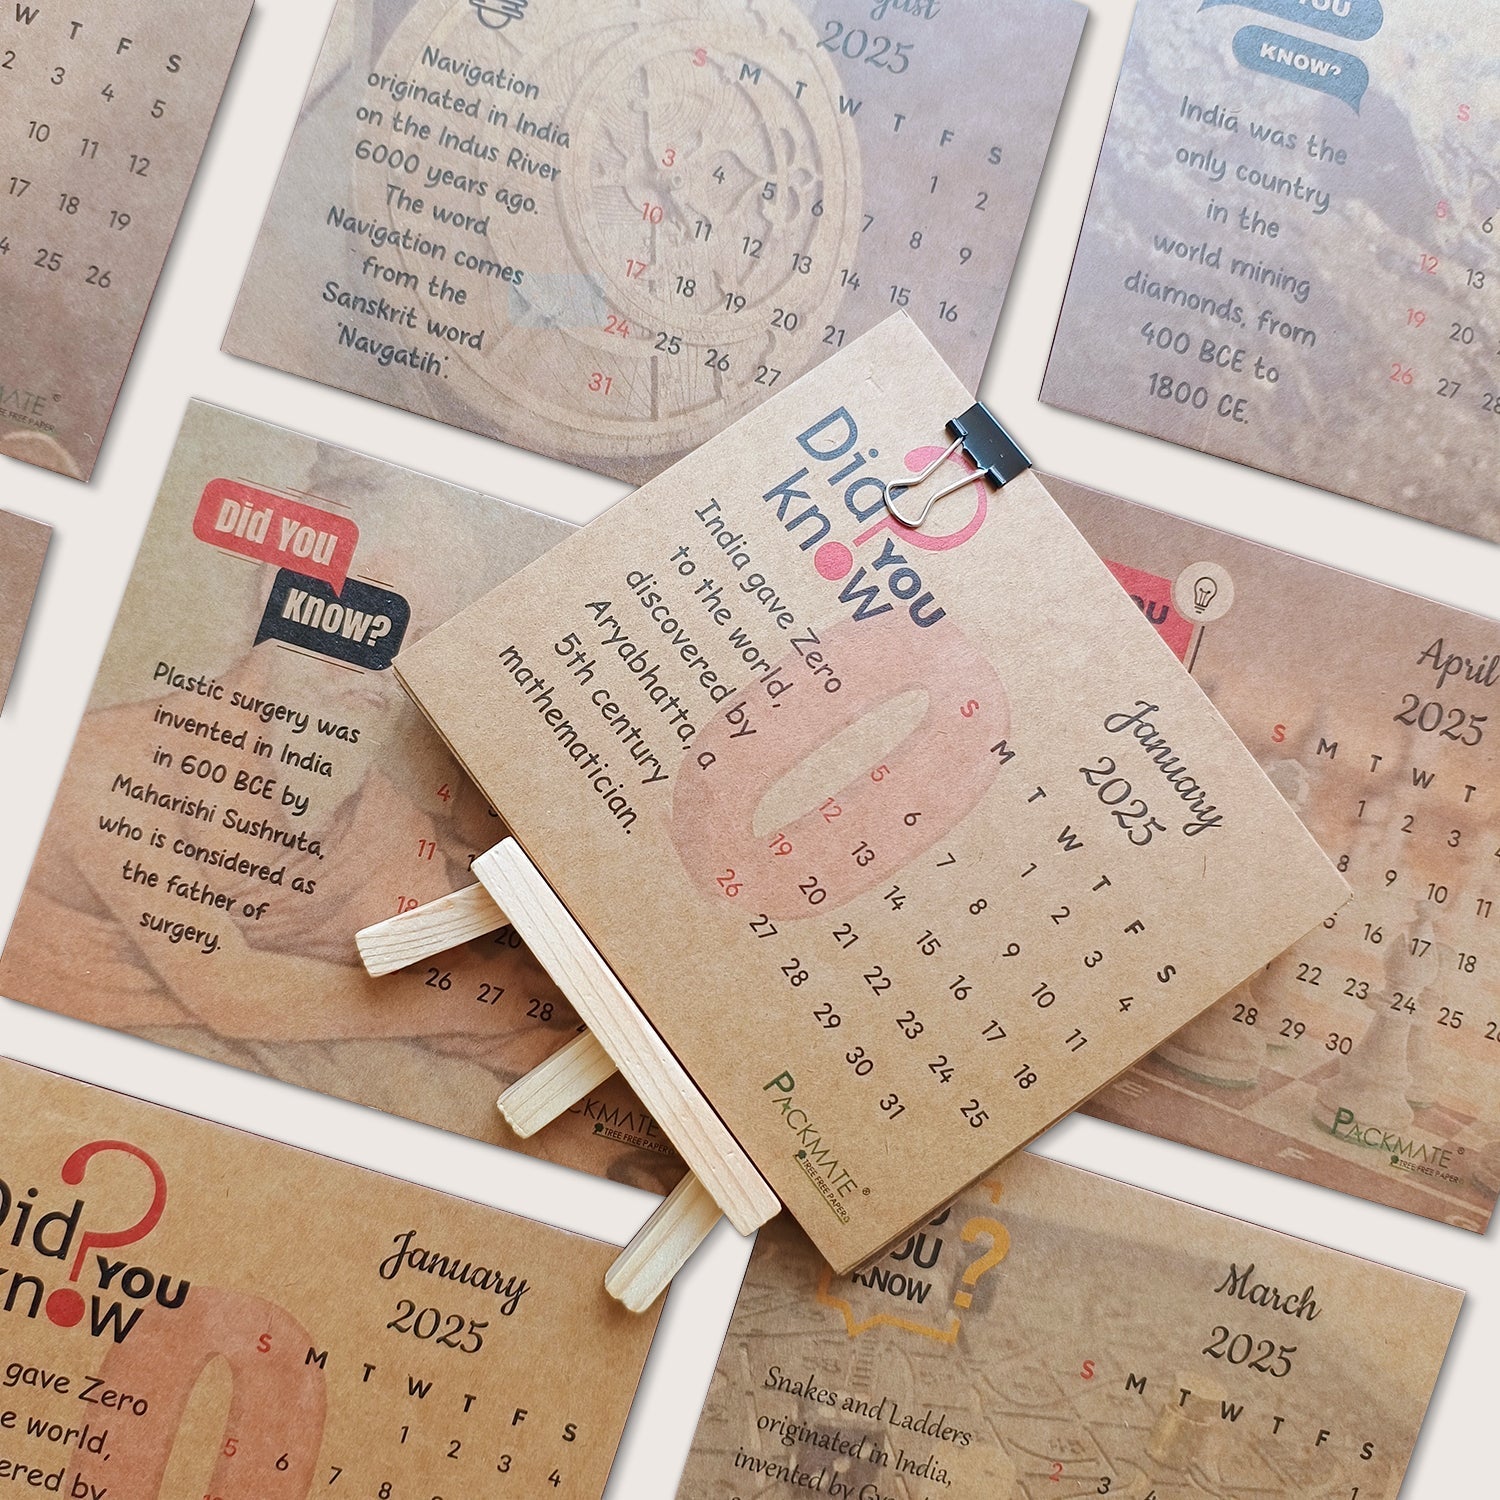 W T F S
2 3 4 5
10 11 12
17 18 19
25 26
Navigation
originated in India
on the Indus River
6000 years ago.
The word
Navigation comes
from the
Sanskrit word
'Navgatih'.
2025
S M T W T F S
1 2
3 4 5 6 7 8 9
10 11 12 13 14 15 16
17 18 19 20 21
24 25 26 27
31
YOU
KNOW?
India was the
only country
in the
world mining
diamonds, from
400 BCE to
1800 CE.
S
5 6
12 13
19 20
26 27 28
Did YOU
KNOW?
Plastic surgery was
invented in India
in 600 BCE by
Maharishi Sushruta,
who is considered as
the father of
surgery.
4
11
18
20
26 27 28
TREE FREE PAPER
Did
YOU
knOW
India gave Zero
to the world,
discovered by
Aryabhatta, a
5th century
mathematician.
January
2025
S M T W T F S
1 2 3 4
5 6 7 8 9 10 11
12 13 14 15 16 17 18
19 20 21 22 23 24 25
26 27 28 29 30 31
PACKMATE®
TREE FREE PAPER
April
2025
S M T W T
1 2 3
8 9 10 11
16 17 18
22 23 24 25
28 29 30
PACKMATE®
TREE FREE PAPER
Did
YOU
knOW
gave Zero
world,
January
2025
S M T W T F S
1 2 3 4
5 6 7 8
KNOW
?
Snakes and Ladders
originated in India,
invented by
March
2025
S M T W T F S
1
2 3 4